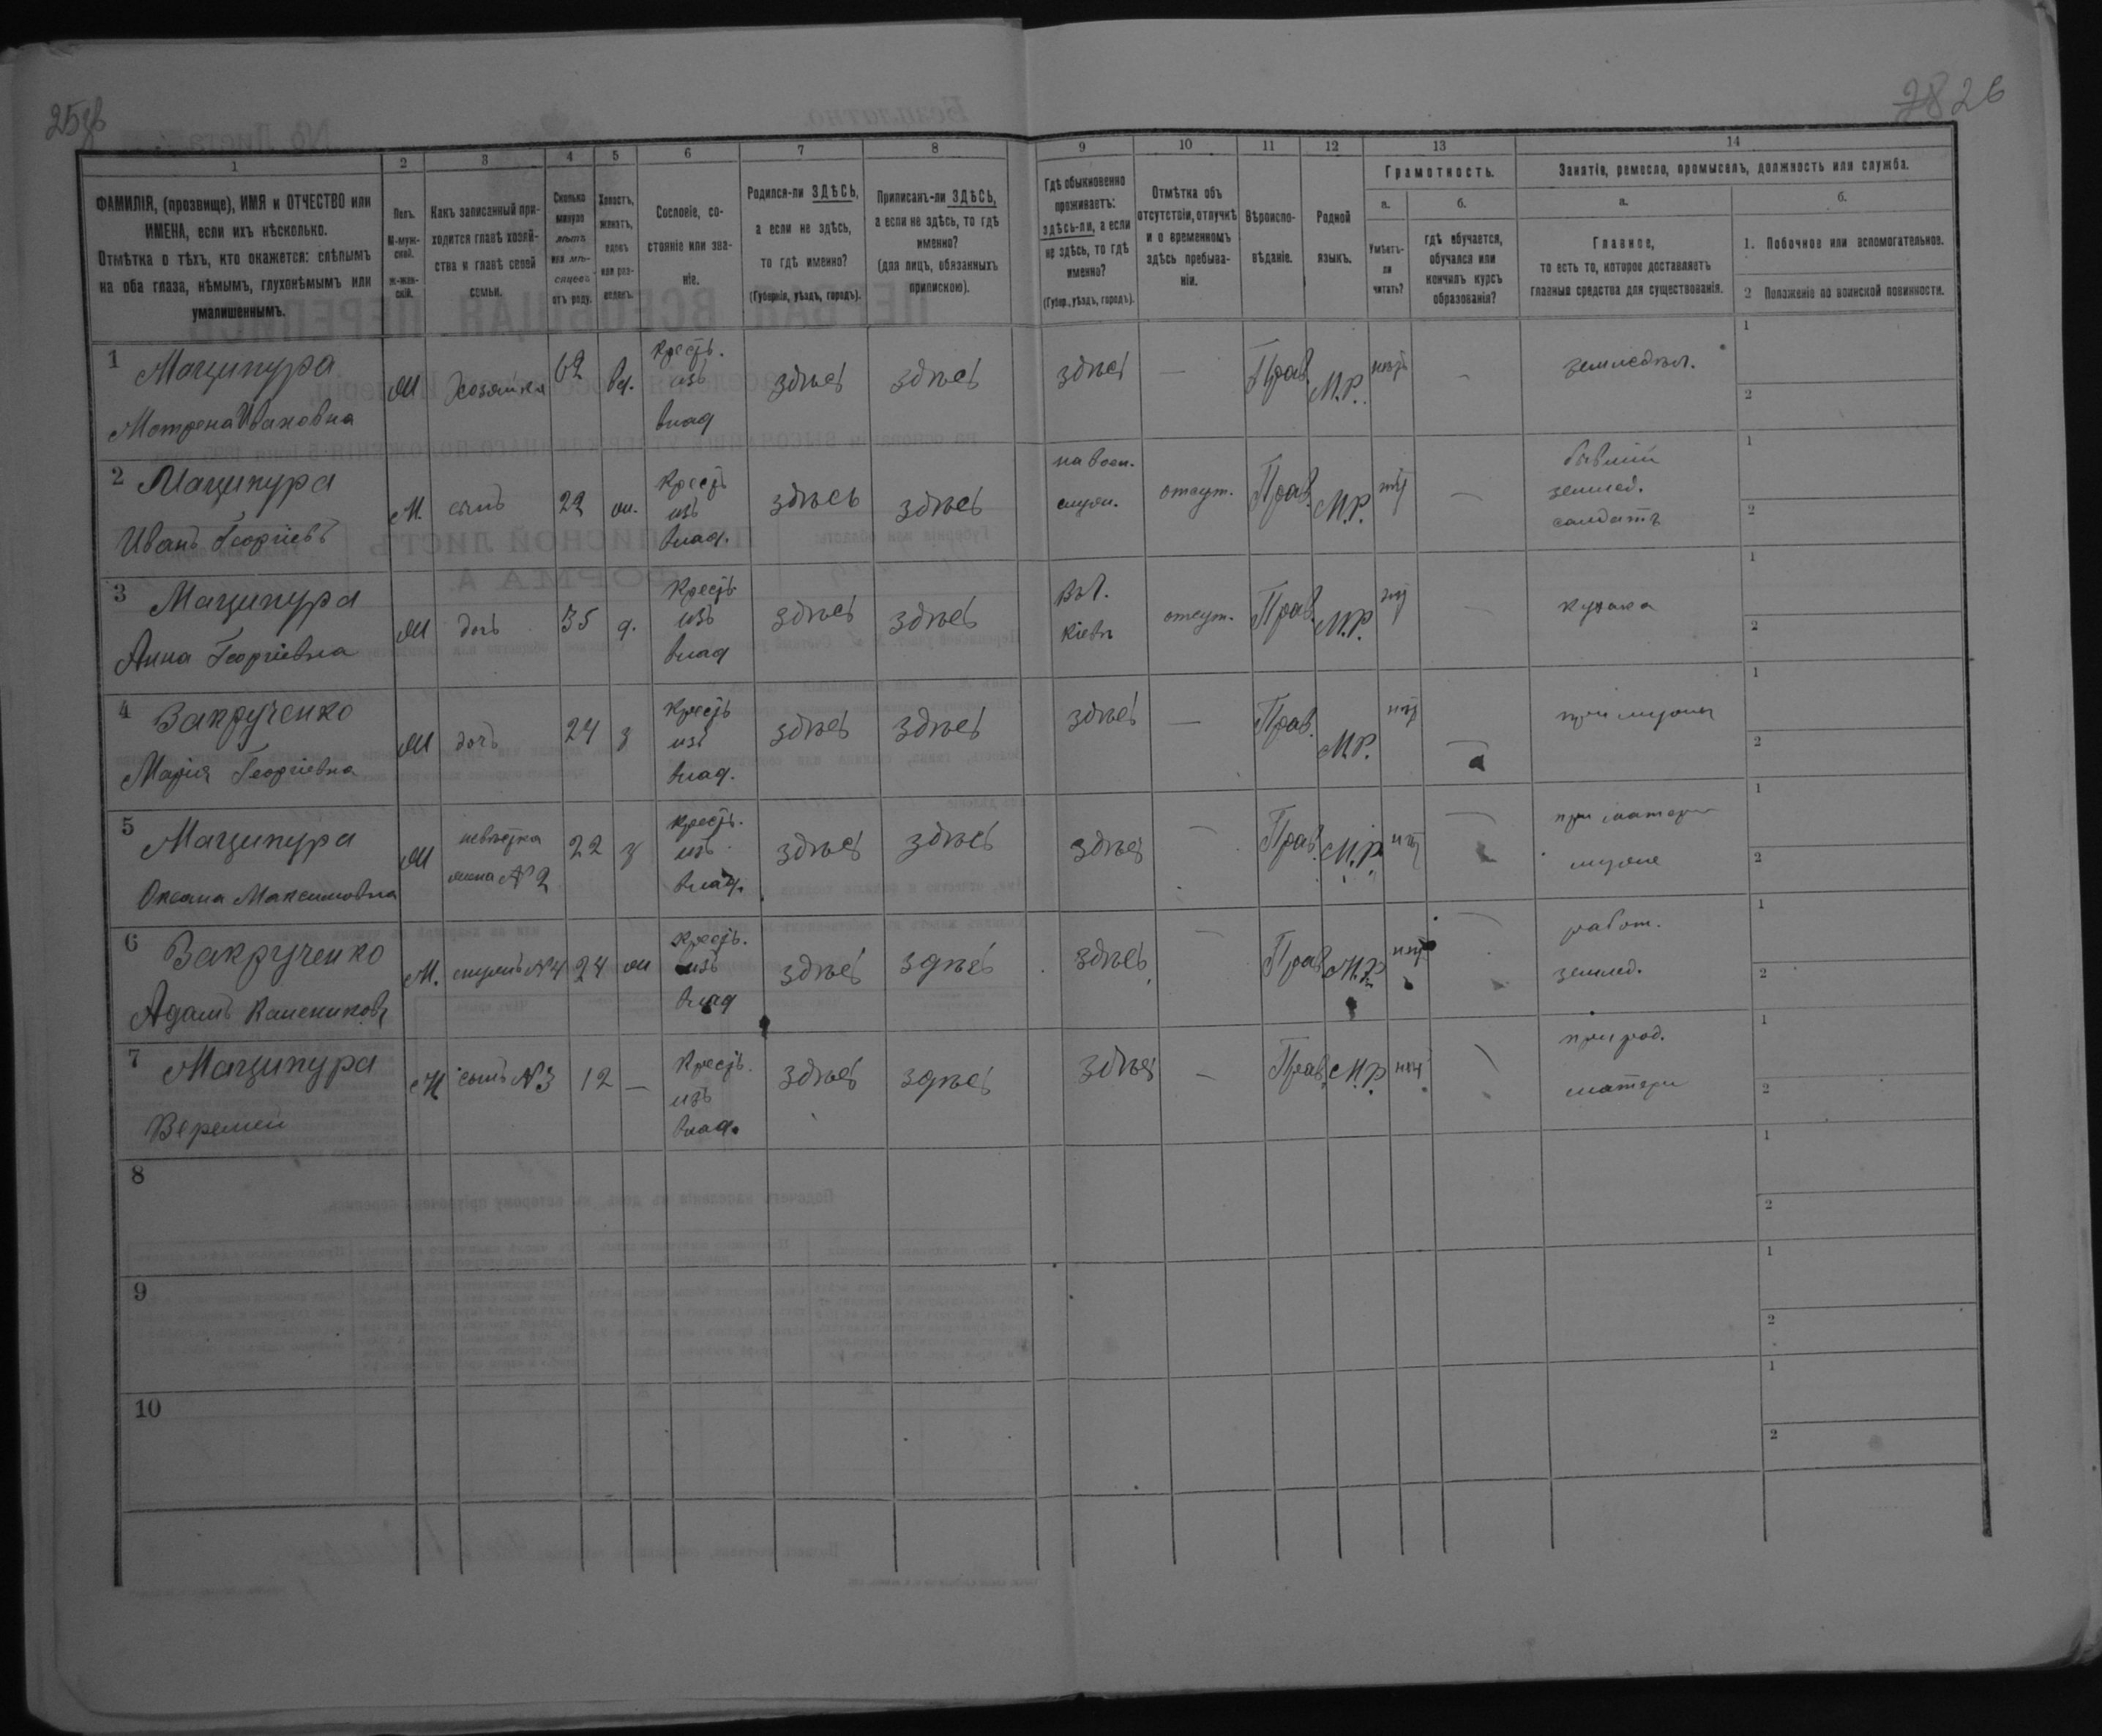 25об
78 26
1
2
3
4
5
6
7
8
9
10
11
12
13
14
ФАМИЛІЯ, (прозвище), ИМЯ и ОТЧЕСТВО или
ИМЕНА, если ихъ нѣсколько.
Отмѣтка о тѣхъ, кто окажется: слѣпымъ
на оба глаза, нѣмымъ, глухонѣмымъ или
умалишеннымъ.
Полъ.
М-муж-
ской.
Ж-жен-
скій.
Какъ записанный при-
ходится главѣ хозяй-
ства и главѣ своей
семьи.
Сколько
минуло
лѣтъ
или мѣ-
сяцевъ
отъ роду.
Холостъ,
женатъ,
вдовъ
или раз-
веденъ.
Сословіе, со-
стояніе или зва-
ніе.
Родился-ли ЗДѢСЬ,
а если не здѣсь,
то гдѣ именно?
(Губернія, уѣздъ, городъ).
Приписанъ-ли ЗДѢСЬ,
а если не здѣсь, то гдѣ
именно?
(для лицъ, обязанныхъ
припискою).
Гдѣ обыкновенно
проживаетъ:
здѣсь-ли, а если
не здѣсь, то гдѣ
именно?
(Губер., уѣздъ, городъ).
Отмѣтка объ
отсутствіи, отлучкѣ
и о временномъ
здѣсь пребыва-
ніи.
Вѣроиспо-
вѣданіе.
Родной
языкъ.
Грамотность.
а.
Умѣетъ-
ли
читать?
б.
гдѣ обучается,
обучался или
кончилъ курсъ
образованія?
Занятіе, ремесло, промыселъ, должность или служба.
а.
Главное,
то есть то, которое доставляетъ
главныя средства для существованія.
б.
1. Побочное или вспомогательное.
2 Положеніе по воинской повинности.
1 Маципура
Мотрена Ивановна
хозяйка
62
вд.
Крест.
изъ
влад
здѣсь
здѣсь
здѣсь
—
Прав.
М.Р.
нѣтъ
—
земледѣл.
1
2
2 Маципура
Иванъ Георгіевъ
М.
сынъ
22
Крест
изъ
влад.
здѣсь
здѣсь
на воен.
служ.
отсут.
Прав.
М.Р.
—
бывший
землед.
солдатъ
1
2
3 Маципура
Анна Георгіевна
дочь
35
д.
Крест
изъ
влад
здѣсь
здѣсь
Въ г.
Кіевѣ
отсут.
Прав.
М.Р.
—
1
2
4 Закрученко
Марія Георгіевна
дочь
24
з
Крест
изъ
влад.
здѣсь
здѣсь
здѣсь
—
Прав.
М.Р.
—
1
2
5 Маципура
Оксана Максимовна
невѣстка
жена № 2
22
з
Крест.
изъ
влад.
здѣсь
здѣсь
здѣсь
—
Прав.
М.Р.
—
при матери
мужа
1
2
6 Закрученко
Адамъ
М.
№4
24
Крест.
изъ
влад
здѣсь
здѣсь
здѣсь
—
Прав
М.Р.
—
работ.
землед.
1
2
7 Маципура
Веремей
М
сынъ №3
12
—
Крест.
изъ
влад.
здѣсь
здѣсь
здѣсь
—
Прав.
М.Р.
при род.
матери
1
2
8
1
2
9
1
2
10
1
2